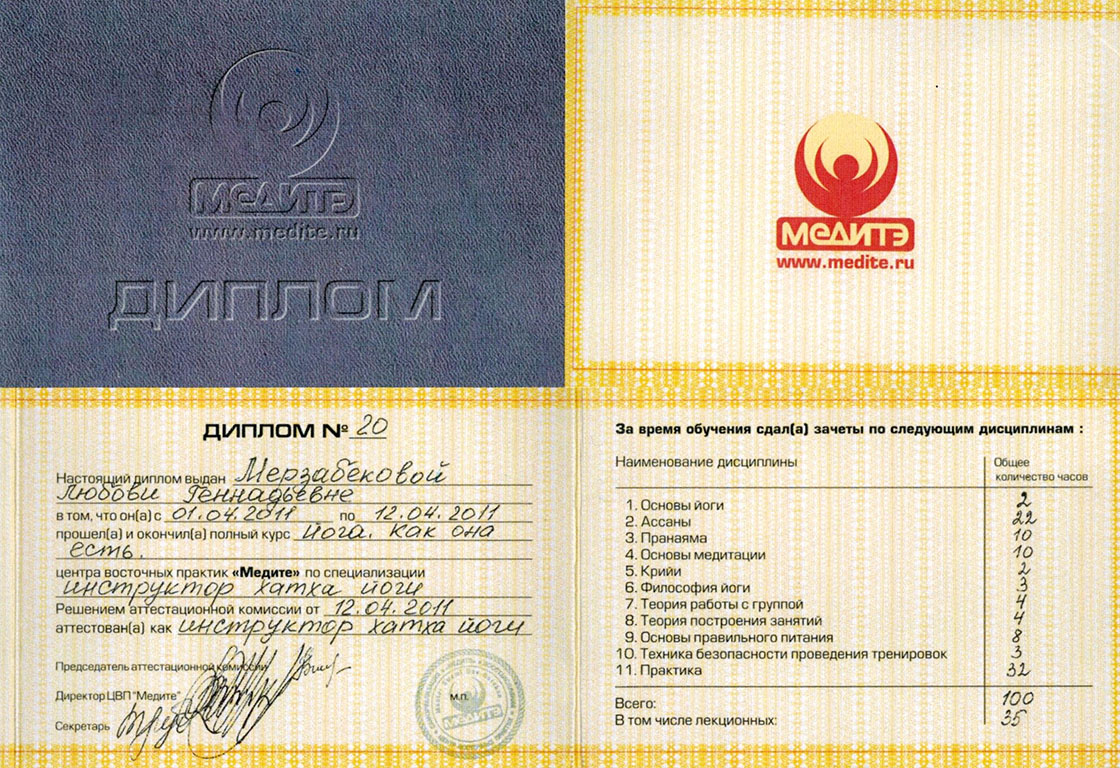 МЕДИТЭ
www.medite.ru
ДИПЛОМ
МЕДИТЭ
www.medite.ru
ДИПЛОМ № 20
Настоящий диплом выдан Мерзабековой
Любови Геннадьевне
в том, что он(а) с 01.04.2011 по 12.04.2011
прошел(а) и окончил(а) полный курс йога. как она
есть.
центра восточных практик «Медите» по специализации
инструктор хатха йоги
Решением аттестационной комиссии от 12.04.2011
аттестован(а) как инструктор хатха йоги
Председатель аттестационной комиссии
Директор ЦВП "Медите"
Секретарь
м.п.
МЕДИТЭ
За время обучения сдал(а) зачеты по следующим дисциплинам :
Наименование дисциплины Общее
количество часов
1. Основы йоги 2
2. Ассаны 22
3. Пранаяма 10
4. Основы медитации 10
5. Крийи 2
6. Философия йоги 3
7. Теория работы с группой 4
8. Теория построения занятий 4
9. Основы правильного питания 8
10. Техника безопасности проведения тренировок 3
11. Практика 32
Всего: 100
В том числе лекционных: 35